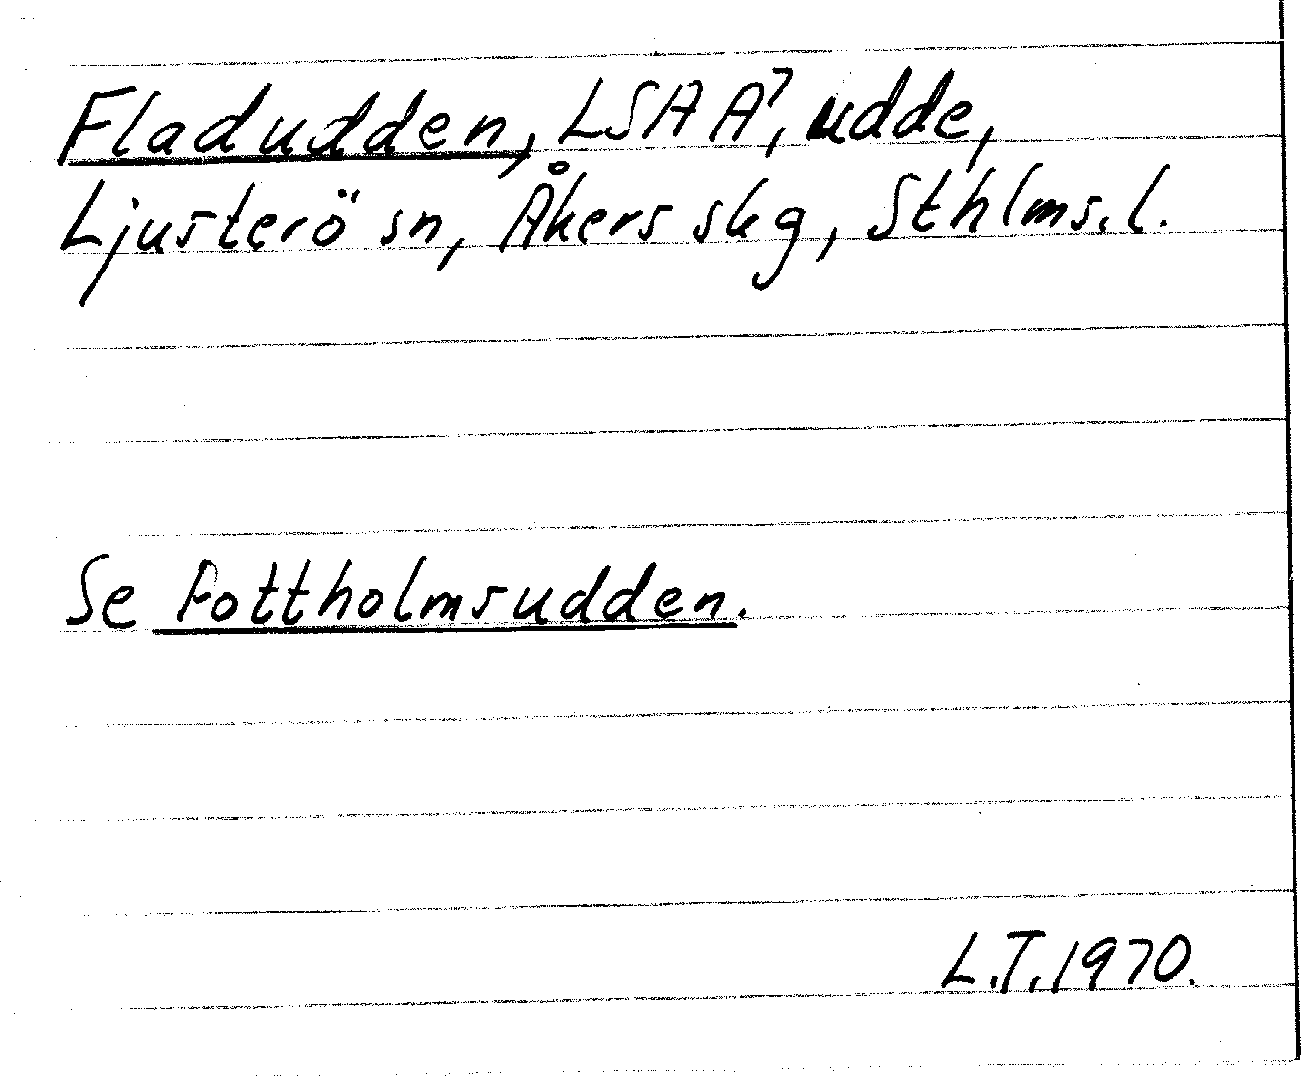 Fladudden, LSA A⁷, udde,
Ljusterö sn, Åkers skg, Sthlms. l.
Se Pottholmsudden.
L.T. 1970.